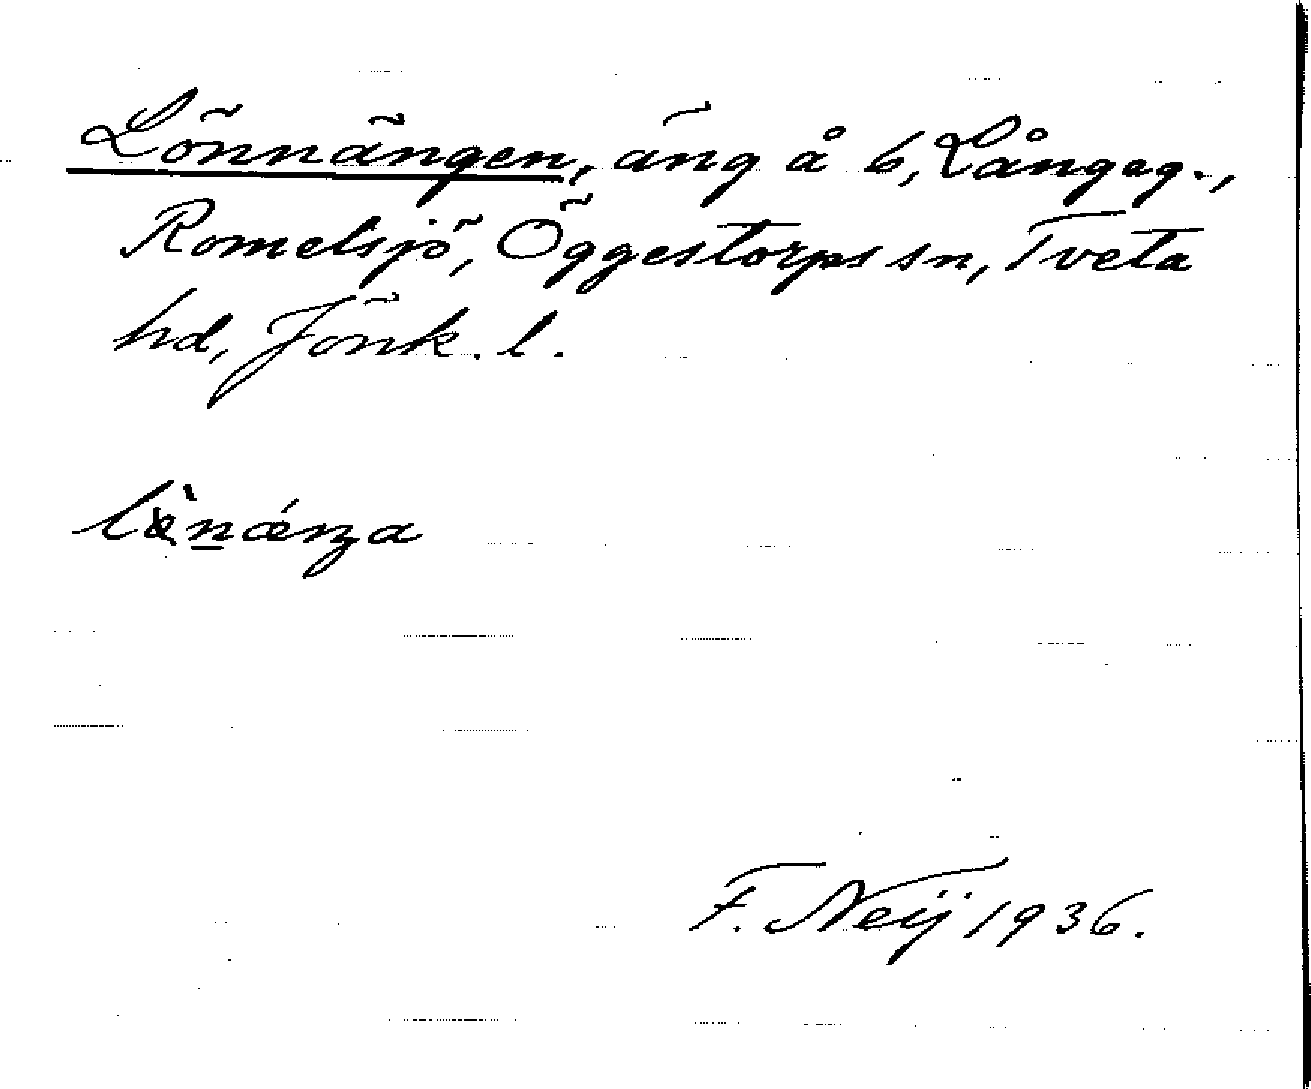 Lönnängen, äng å 6, Långag.,
Romelsjö, Öggestorps sn, Tveta
hd, Jönk. l.
F. Neij 1936.